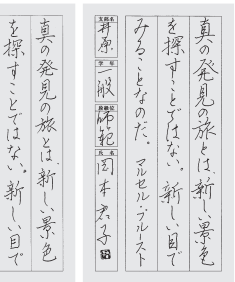 真の発見の旅とは、新しい景色
を探すことではない。新しい目で
みることなのだ。 マルセル・プルースト
支部名 井原 学年 一般 段級位 師範 氏名 岡本君子
真の発見の旅とは、新しい景色
を探すことではない。新しい目で